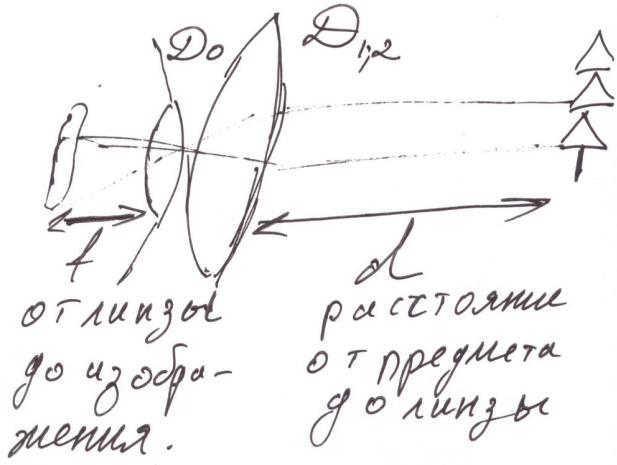 D₀ D₁,₂
f d
от линзы
до изобра-
жения.
расстояние
от предмета
до линзы